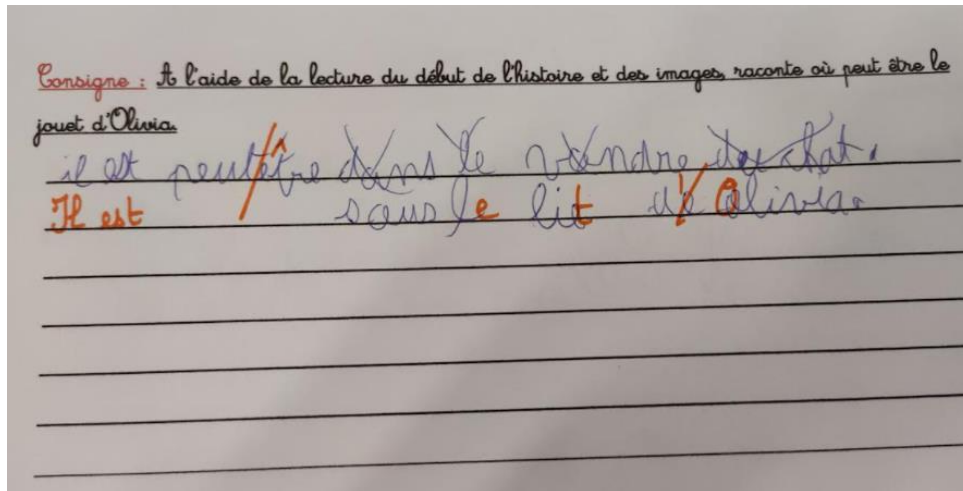 Consigne : A l'aide de la lecture du début de l'histoire et des images, raconte où peut être le
jouet d'Olivia.
il est peutêtre dans le vandre du chat.
Il est sous le lit d' Olivia.